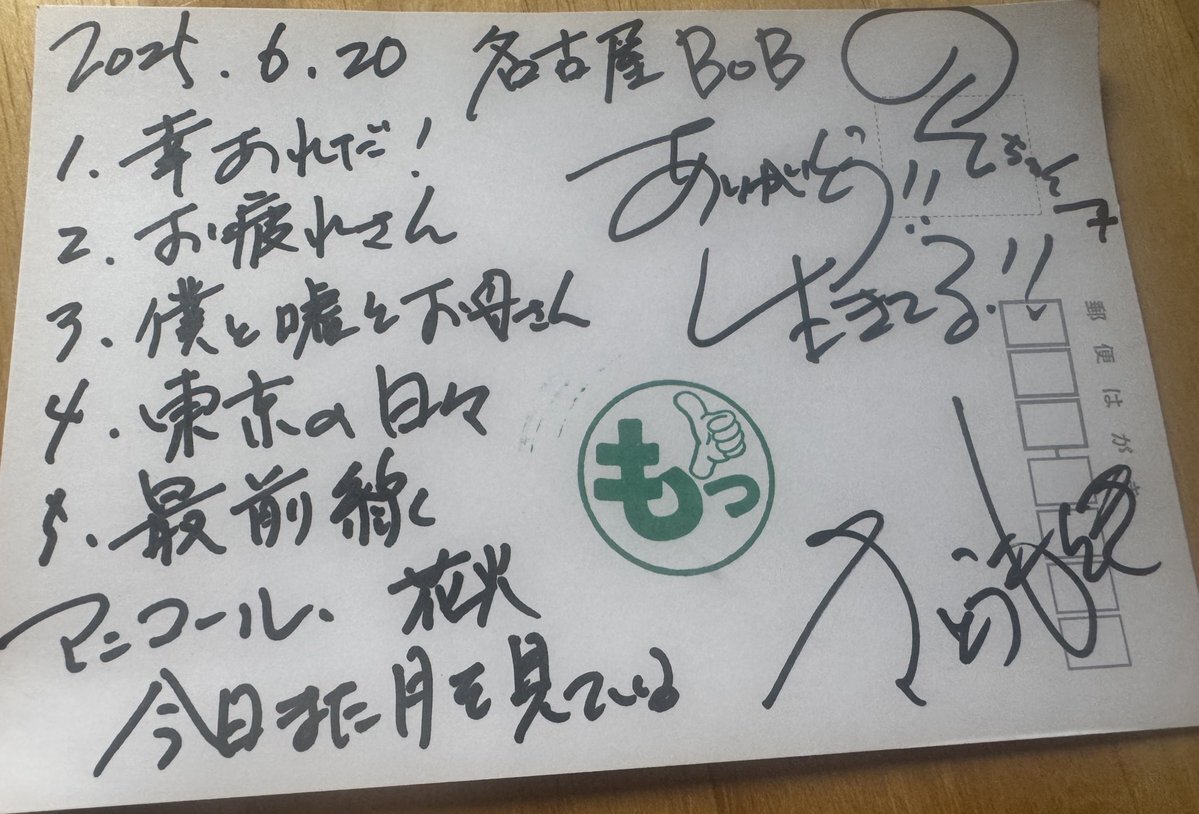 2025.6.20 名古屋 BoB
1. 幸あれだ!
2. お疲れさん
3. 僕と嘘とお母さん
4. 東京の日々
5. 最前線く
アンコール、花火
今日また月を見ている
ちゃん
ありがとう!!
生きてる!!
もっ
郵便はがき